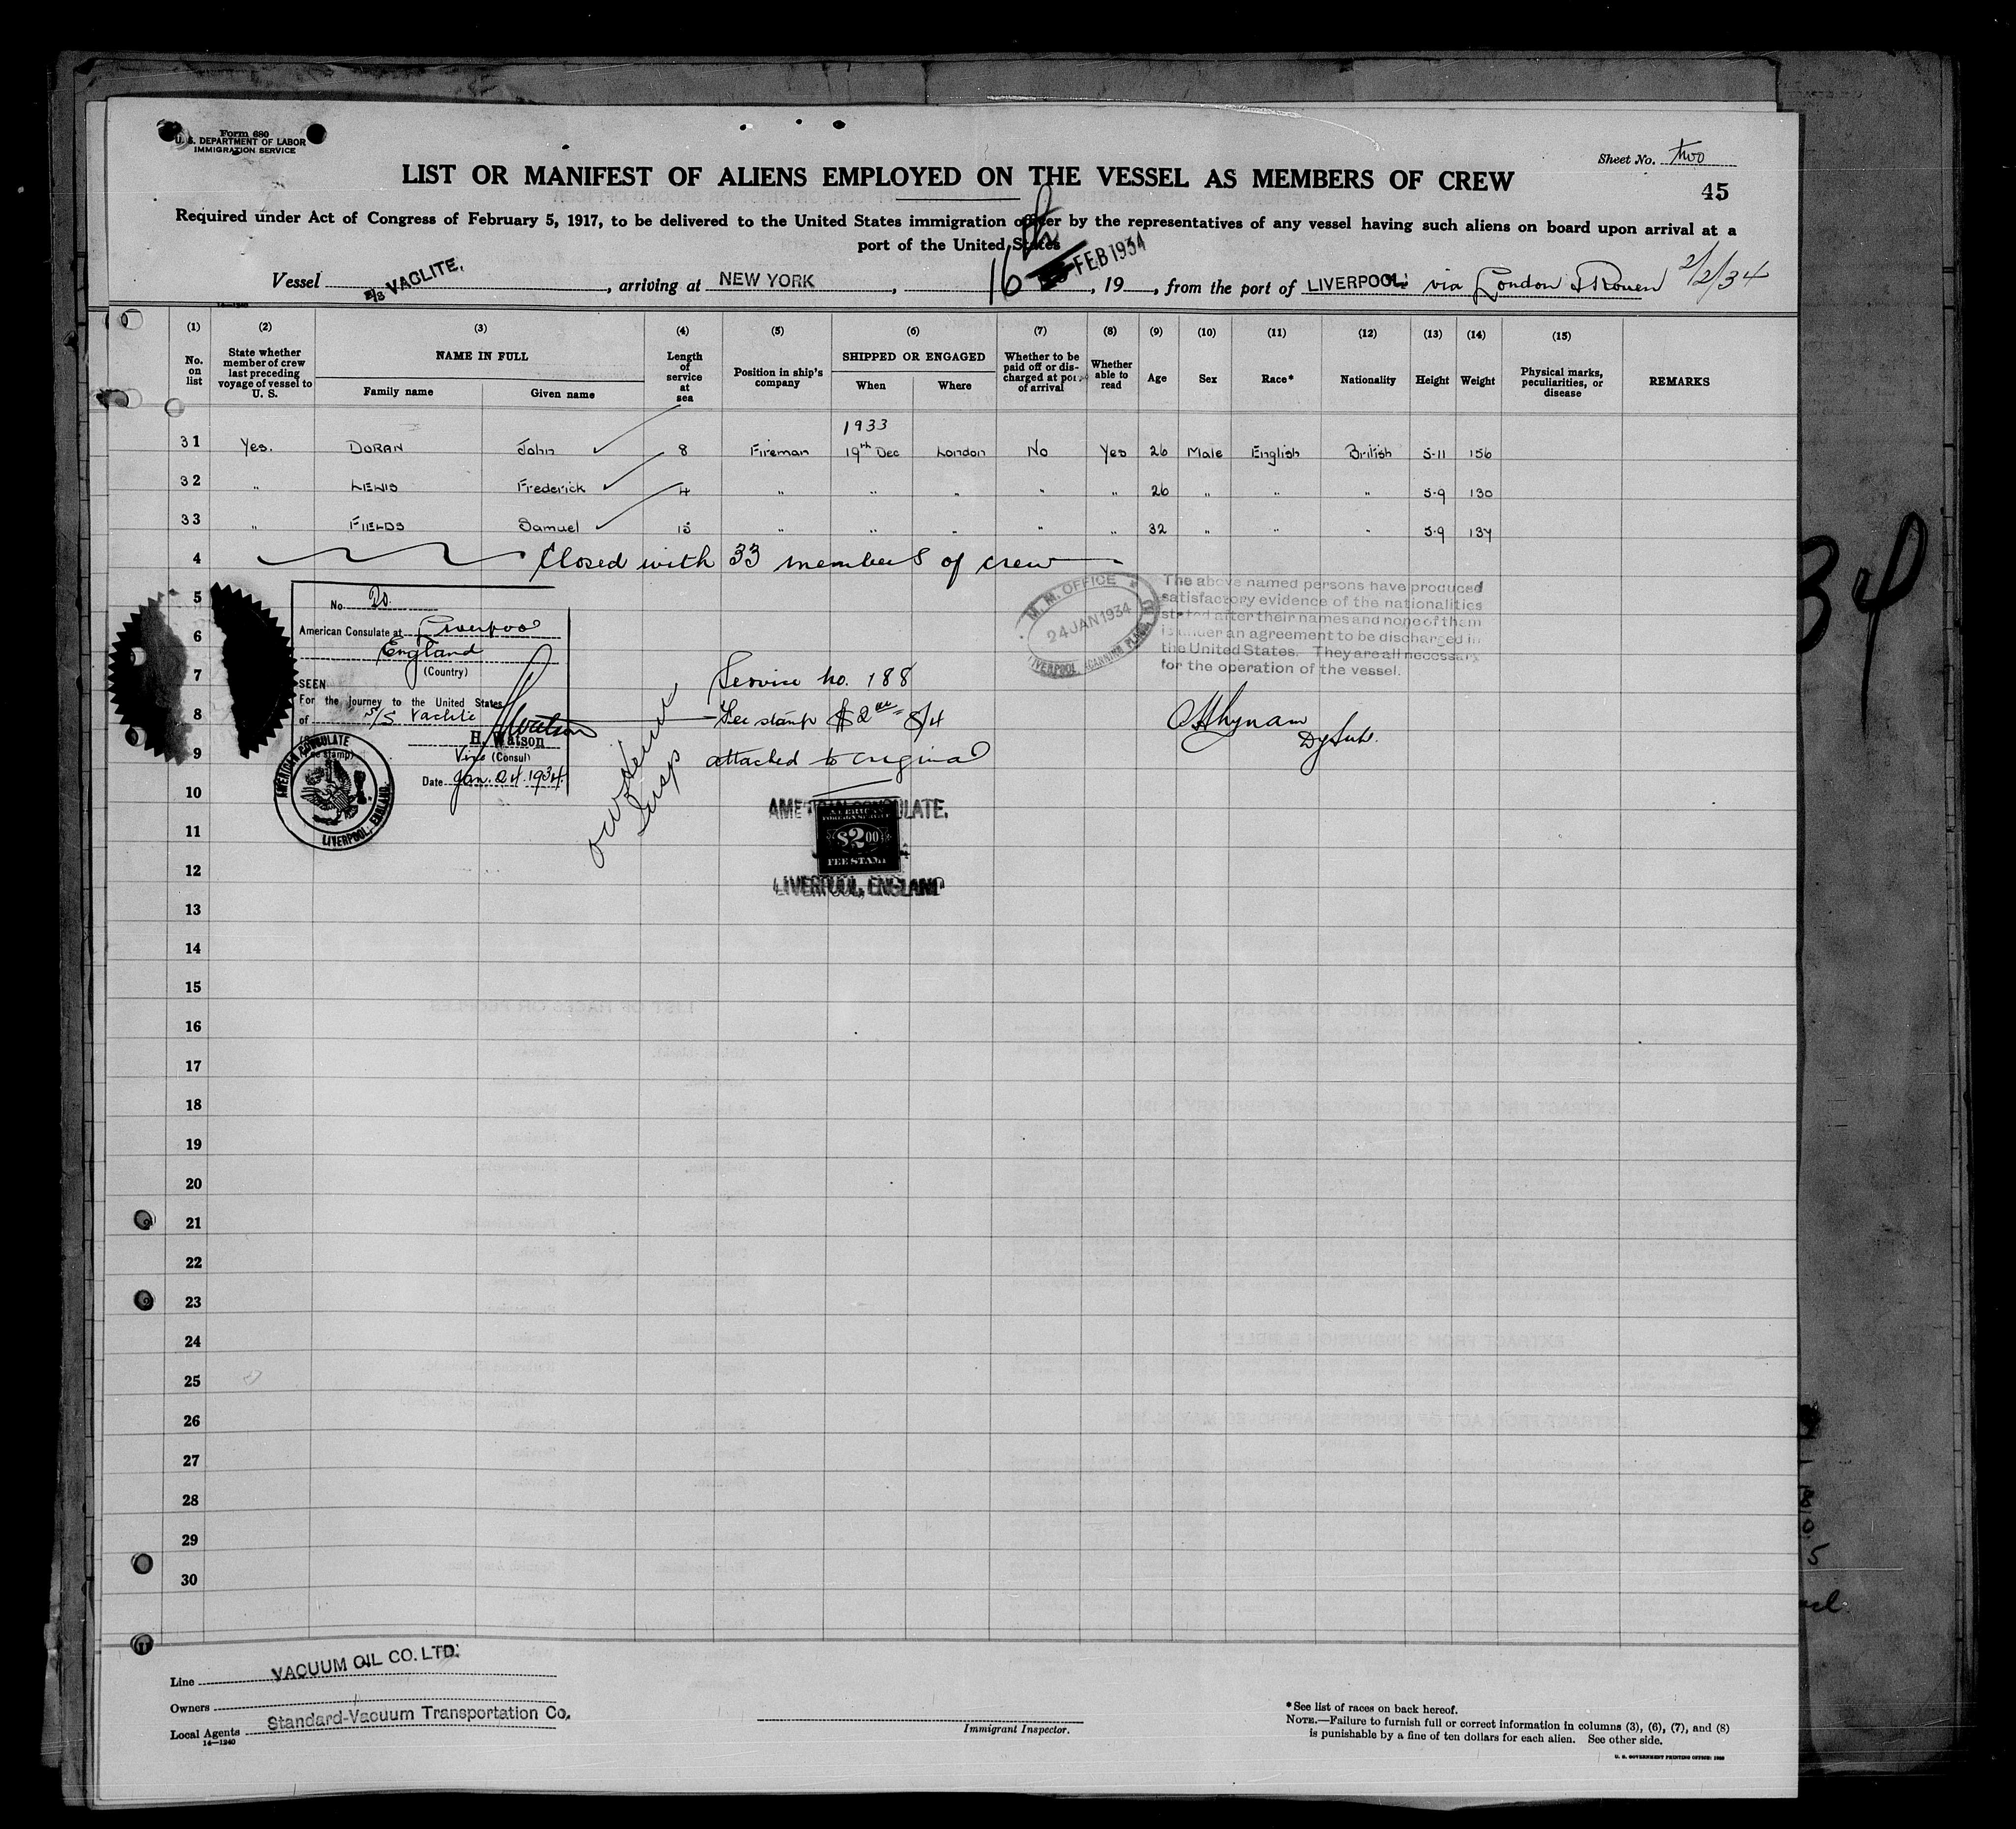 Form 680
U. S. DEPARTMENT OF LABOR
IMMIGRATION SERVICE
Sheet No. two
LIST OR MANIFEST OF ALIENS EMPLOYED ON THE VESSEL AS MEMBERS OF CREW
45
Required under Act of Congress of February 5, 1917, to be delivered to the United States immigration officer by the representatives of any vessel having such aliens on board upon arrival at a
port of the United States
Vessel S/S VACLITE., arriving at NEW YORK, 16 FEB 1934, 19, from the port of LIVERPOOL: via London & Rouen 2/2/34
(1) (2) (3) (4) (5) (6) (7) (8) (9) (10) (11) (12) (13) (14) (15)
No. on list
State whether member of crew last preceding voyage of vessel to U. S.
NAME IN FULL
Family name Given name
Length of service at sea
Position in ship's company
SHIPPED OR ENGAGED
When Where
Whether to be paid off or discharged at port of arrival
Whether able to read
Age Sex Race* Nationality Height Weight
Physical marks, peculiarities, or disease
REMARKS
1933
31 Yes. DORAN John 8 Fireman 19th Dec London No Yes 26 Male English British 5-11 156
32 " LEWIS Frederick 4 " " " " " 26 " " " 5-9 130
33 " FIELDS Samuel 15 " " " " " 32 " " " 5-9 137
4 Closed with 33 members of crew
5
6
7
8
9
10
11
12
13
14
15
16
17
18
19
20
21
22
23
24
25
26
27
28
29
30
No. 20.
American Consulate at Liverpool
England
(Country)
SEEN
For the journey to the United States
of S/S Vaclite
H. Watson
Vice (Consul)
Date Jan. 24. 1934.
AMERICAN CONSULATE
LIVERPOOL, ENGLAND.
Service No. 188
Fee stamp $2
attached to original
M. M. OFFICE
24 JAN 1934
LIVERPOOL CANNING PLACE
The above named persons have produced
satisfactory evidence of the nationalities
stated after their names and none of them
is under an agreement to be discharged in
the United States. They are all necessary
for the operation of the vessel.
Dy Supt.
AMERICAN CONSULATE.
$2.00
FEE STAMP
LIVERPOOL, ENGLAND
Line VACUUM OIL CO. LTD.
Owners
Local Agents Standard-Vacuum Transportation Co.
14—1240
Immigrant Inspector.
* See list of races on back hereof.
NOTE.—Failure to furnish full or correct information in columns (3), (6), (7), and (8)
is punishable by a fine of ten dollars for each alien. See other side.
34